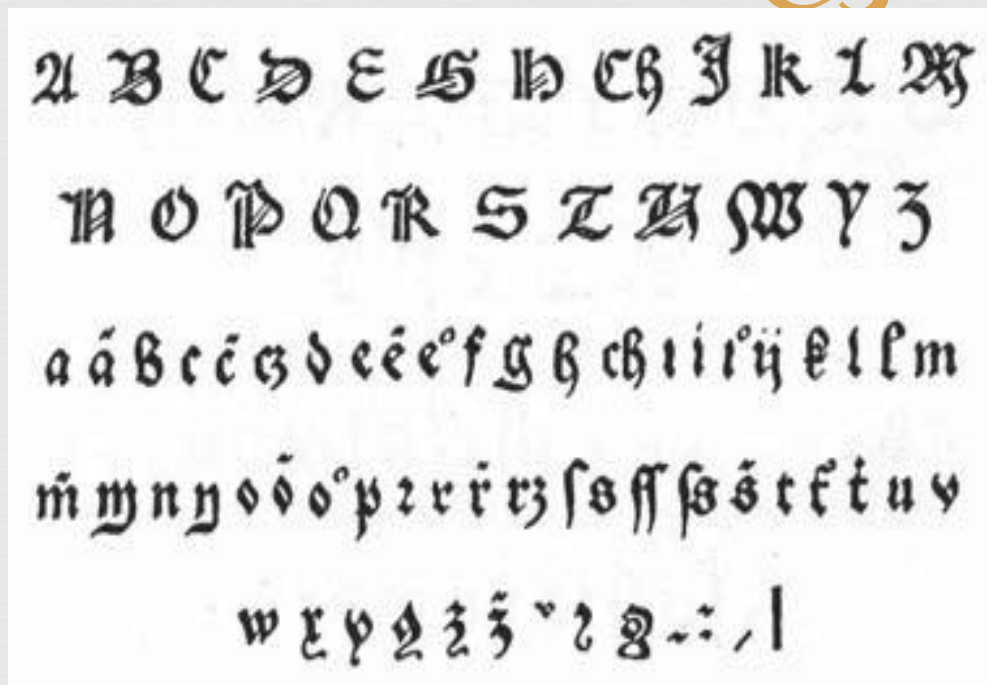 A B C D E G H Ch J K L M
N O P Q R S T U W Y Z
a á b c č cz d e ě e° f g h ch ı i i° ij k l l m
m̄ m n n o ó o° p ꝛ r ř rz ſ s ſſ ſs š t t ṫ u v
w x y z ž - : / |